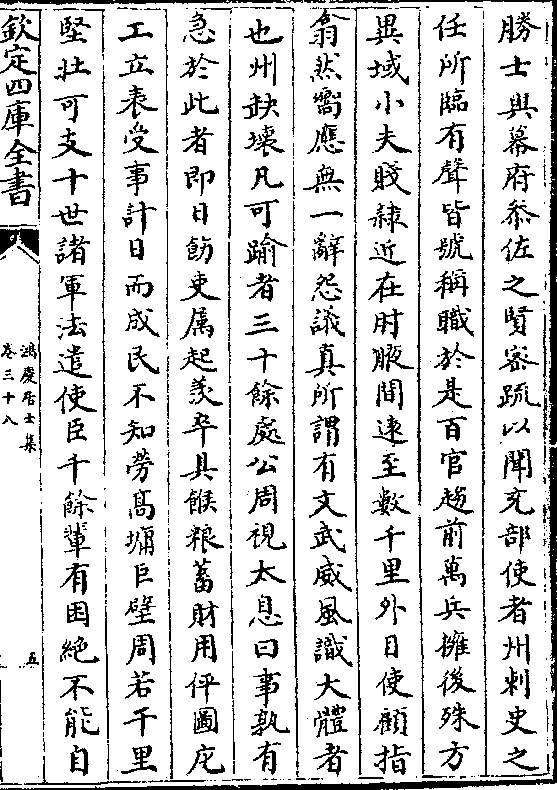 勝士與幕府叅佐之賢密疏以聞充部使者州刺史之
任所臨有聲皆號稱職於是百官趍前萬兵擁後殊方
異域小夫賤隷近在肘腋間逺至數千里外目使顧指
翕然嚮應無一辭怨議真所謂有文武威風識大體者
也州缺壊凡可踰者三十餘處公周視太息曰事孰有
急於此者即日飭吏属起羡卒具餱粮蓄財用伻圖庀
工立表受事計日而成民不知勞髙墉巨壁周若千里
堅壮可支十世諸軍法遣使臣千餘軰有困絶不能自
欽定四庫全書
鴻慶居士集
卷三十八
五